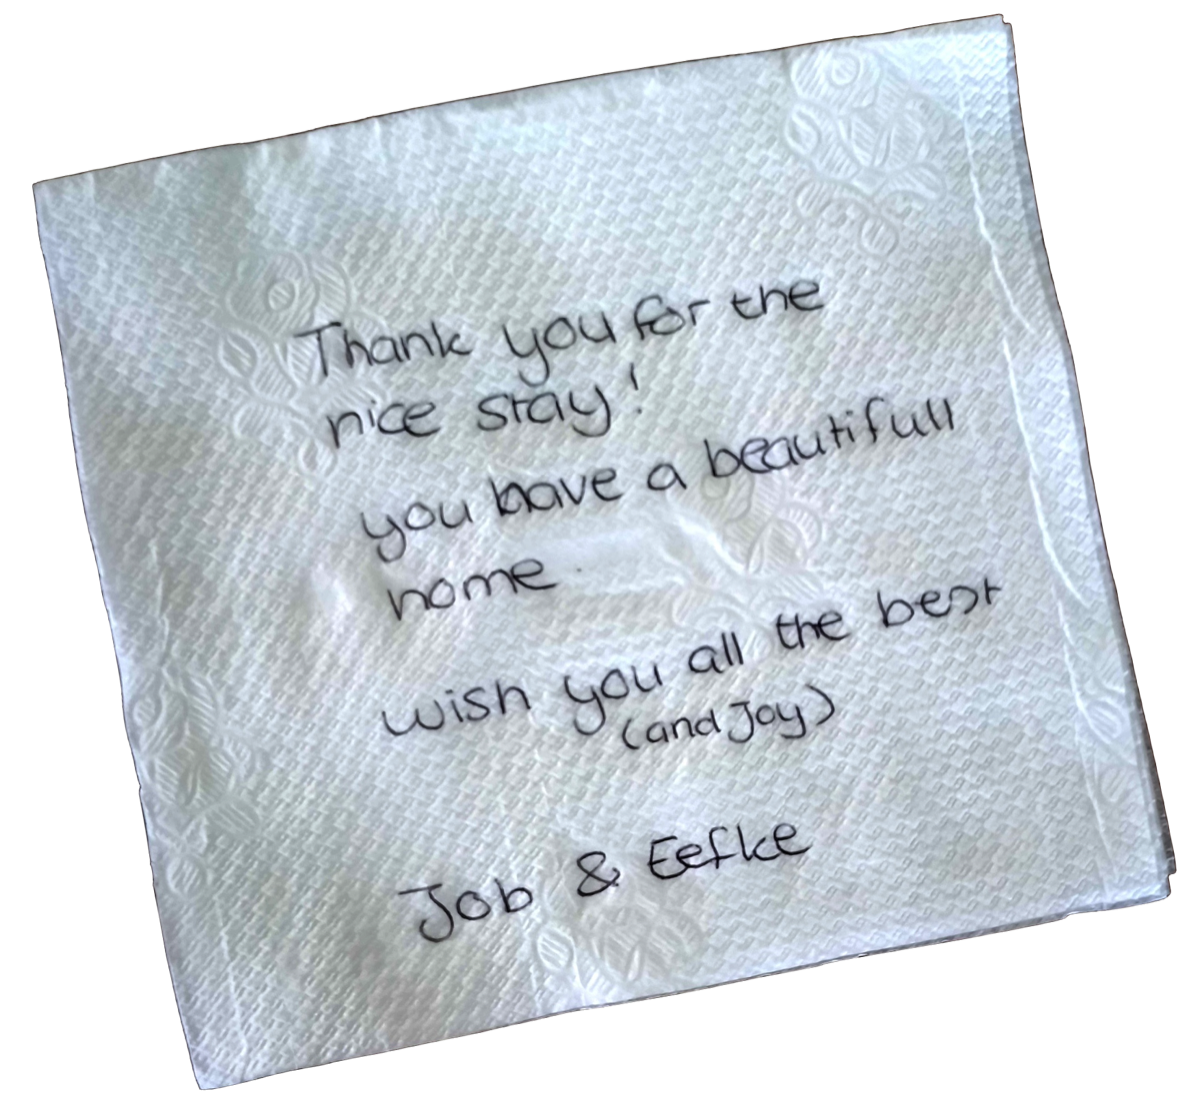 Thank you for the
nice stay!
you have a beautifull
home.
wish you all the best
(and Joy)
Job & Eefke